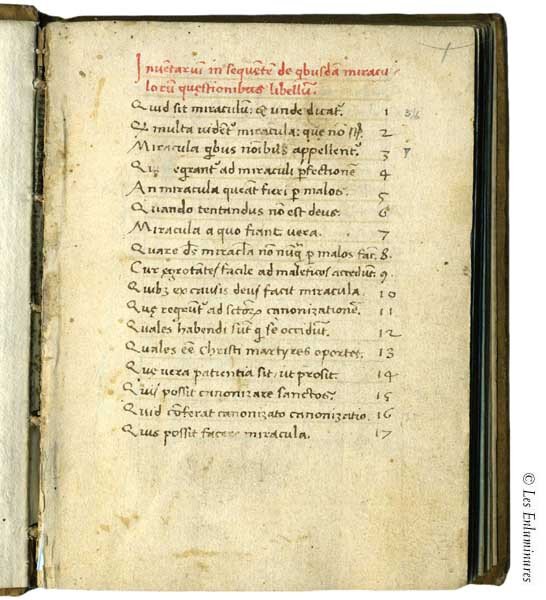 Inventarium in sequentem de qbusdā miracu-
lorū questionibus libellum.
Quid sit miraculum: & unde dicatr. 1 3/6
Q multa videntr miracula: que nō st. 2
Miracula qbus noibus appellentr. 3
Que egrant ad miraculi pfectionem 4
An miracula queāt fieri p malos. 5
Quando tentandus non est deus. 6
Miracula a quo fiant vera. 7
Quare ds miracla nō nūq p malos fac. 8.
Cur egrotātes facile ad maleficos accedūt. 9.
Quibz ex causis deus facit miracula. 10
Que reqrunt ad sctorz canonizationē. 11
Quales habendi sūt q se occidūt. 12
Quales eē Christi martyres oportet. 13
Que vera patientia sit, ut prosit. 14
Quis possit canonizare sanctos. 15
Quid cōferat canonizato canonizatio. 16
Quis possit facere miracula. 17
© Les Enluminures